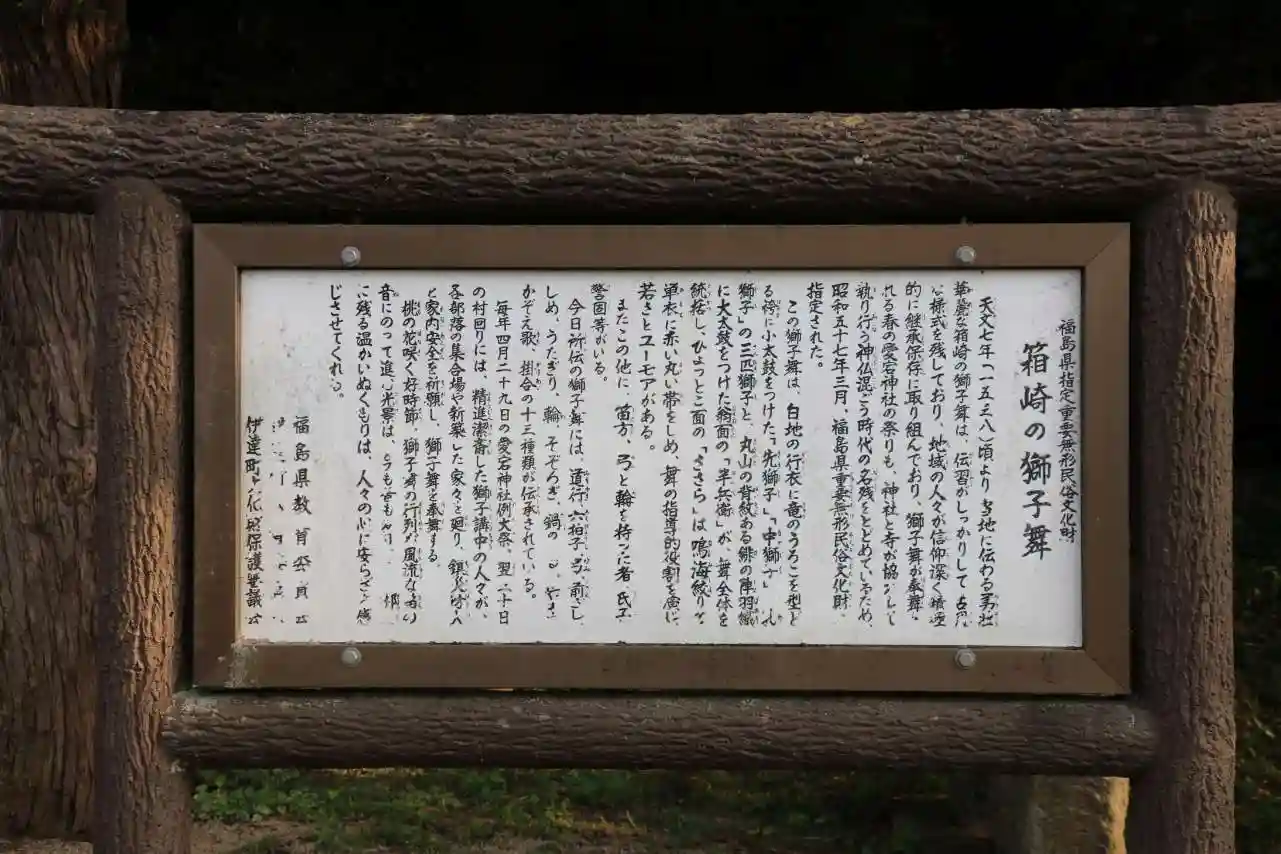 福島県指定重要無形民俗文化財
箱崎の獅子舞
天文七年「一五三八」頃より当地に伝わる勇壮
華麗な箱崎の獅子舞は、伝習がしっかりして古い
様式を残しており、地域の人々が信仰深く積極
的に継承保存に取り組んでおり、獅子舞が奉舞
れる春の愛宕神社の祭りも、神社と寺が協力して
執り行う神仏混こう時代の名残をとどめているため、
昭和五十七年三月、福島県重要無形民俗文化財
指定された。
この獅子舞は、白地の行衣に竜のうろこを型ど
る袴に小太鼓をつけた「先獅子」「中獅子」
獅子」の三匹獅子と、丸山の背紋ある緋の陣羽織
に大太鼓をつけた翁面の「半兵衛」が、舞全体を
統括し、ひょっとこ面の「ささら」は鳴海絞りの
単衣に赤い丸い帯をしめ、舞の指導的役割を演じ
若さとユーモアがある。
またこの他に、笛方、弓と輪を持った者、氏子
警固等がいる。
今日所伝の獅子舞には、道行、六拍子、弓、前
しめ、うたぎり、輪、そぞろぎ、鍋の
かぞえ歌、掛合の十三種類が伝承されている。
毎年四月二十九日の愛宕神社例大祭、翌三十日
の村回りには、精進潔斎した獅子講中の人々が、
各部落の集合場や新築した家々を廻り、
と家内安全を祈願し、獅子舞を奉舞する。
桃の花咲く好時節、獅子舞の行列が風流な笛の
音にのって進む光景は、
に残る温かいぬくもりは、人々の心に安らぎを感
じさせてくれる。
福島県教育委員会
伊達町文化財保護審議会